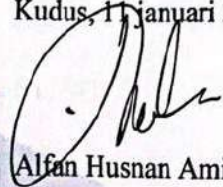 Kudus, 11 januari
Alfan Husnan Ami